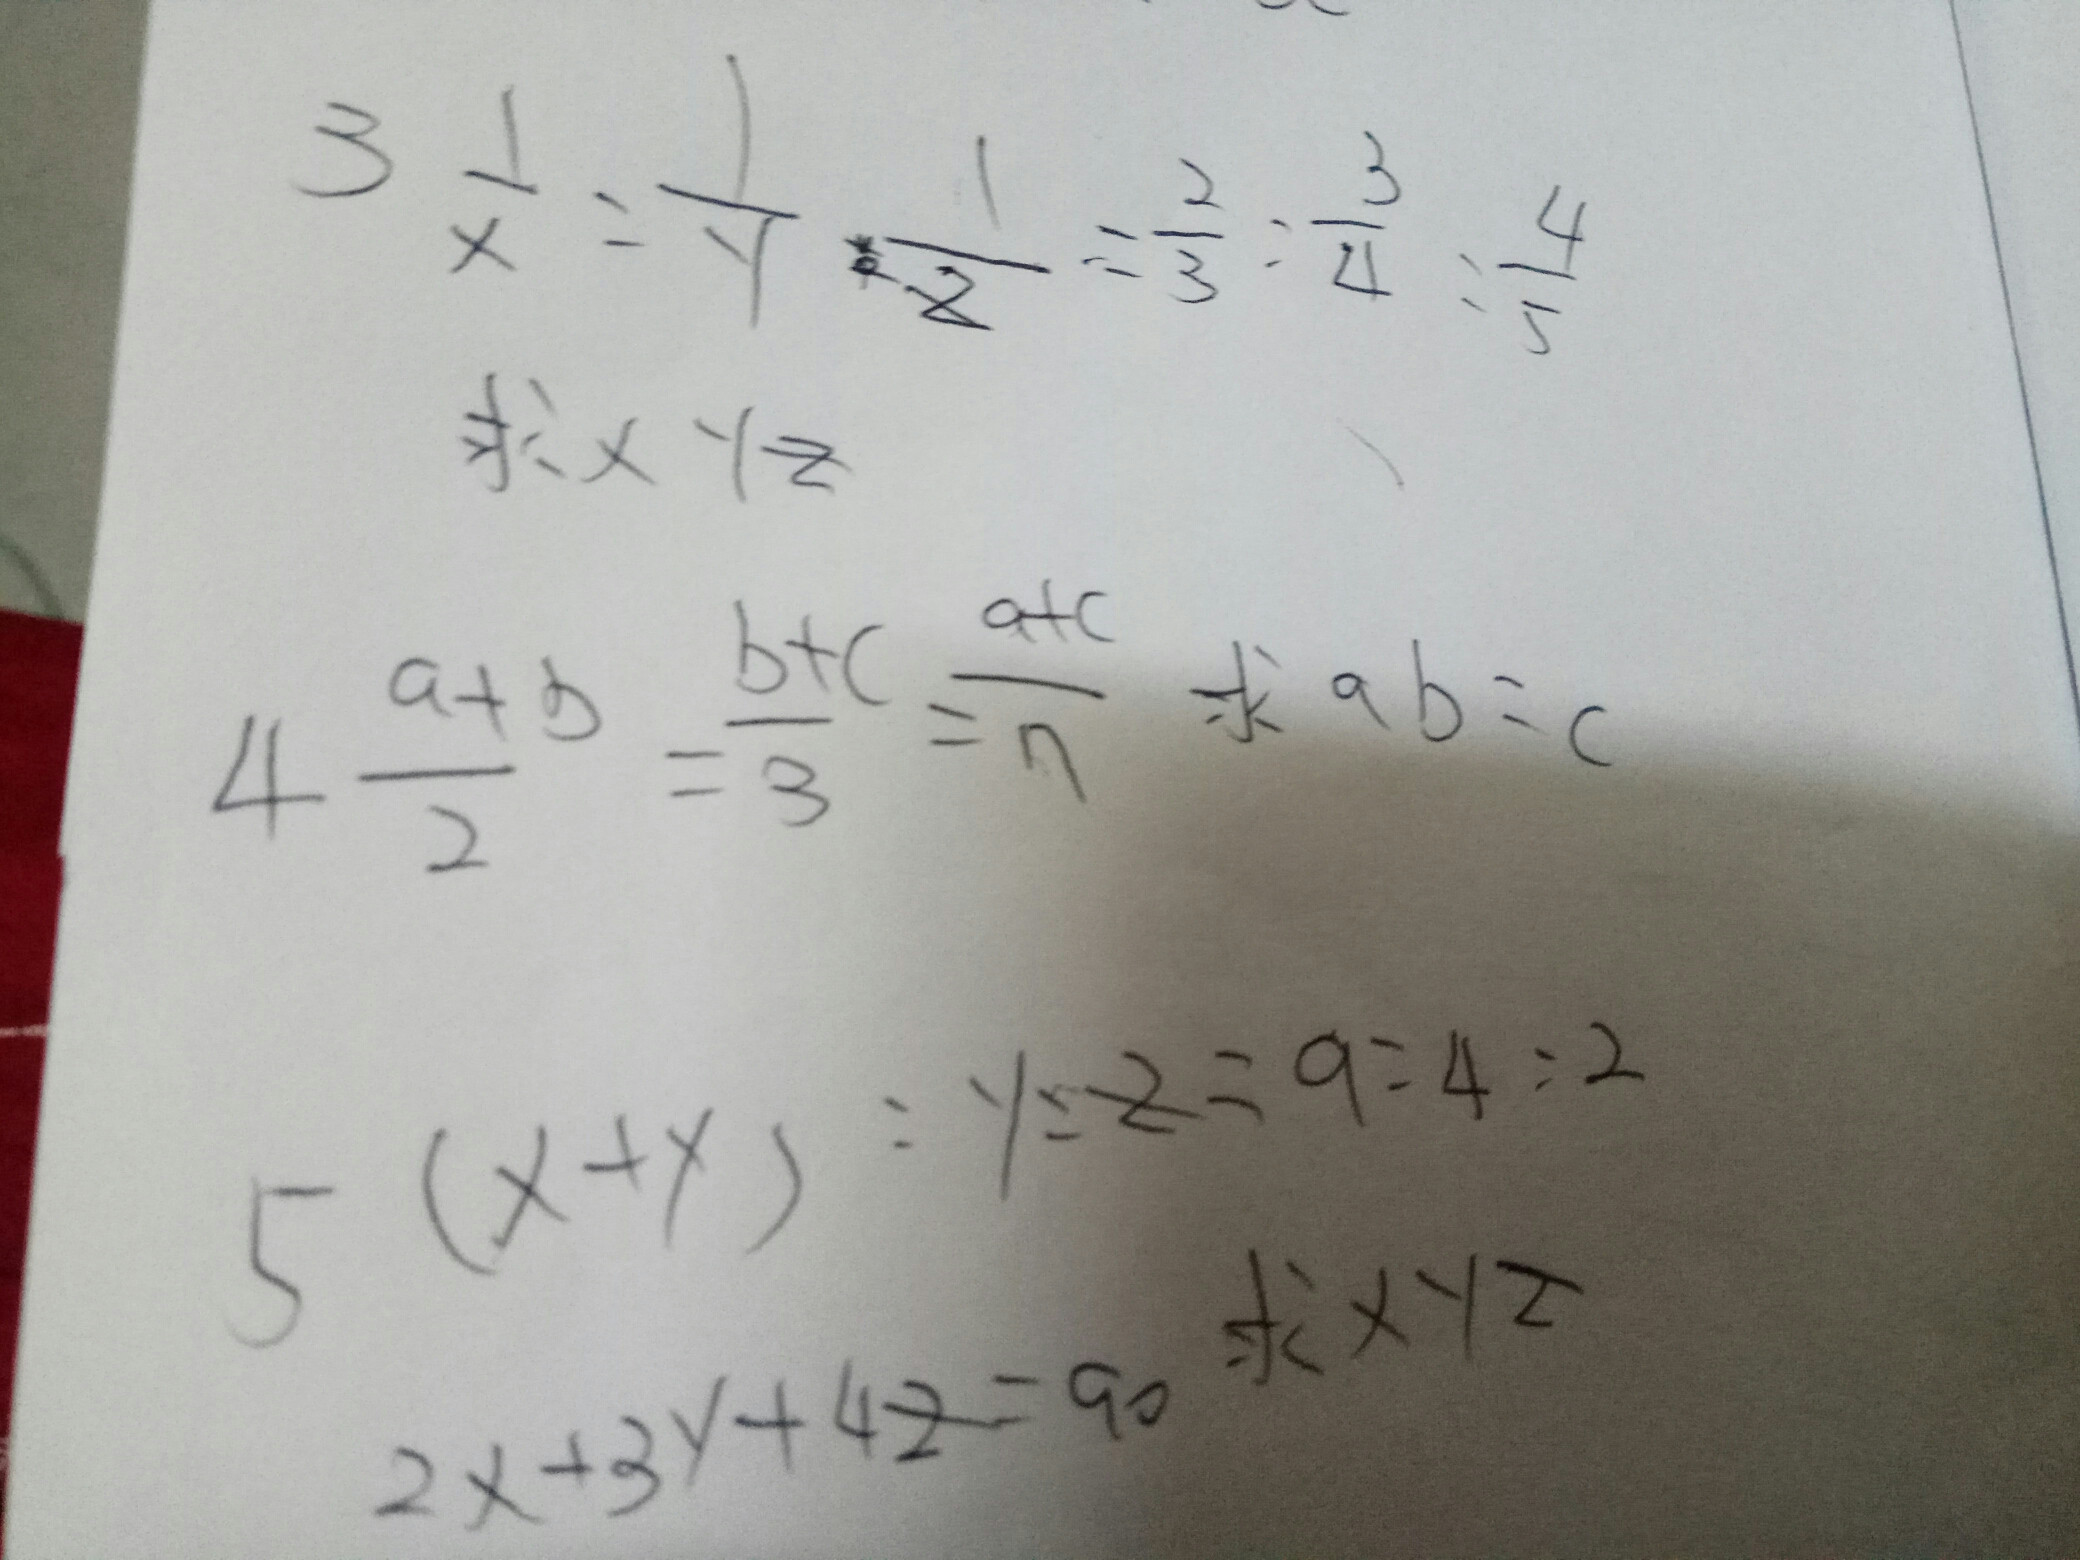 3 1/x = 1/y : 1/z = 2/3 : 3/4 : 4/5
求 x y z
4 a+b/2 = b+c/3 = a+c/n 求 a b = c
5 (x+y) : y = z = 9 = 4 : 2
求 x y z
2x+3y+4z=90